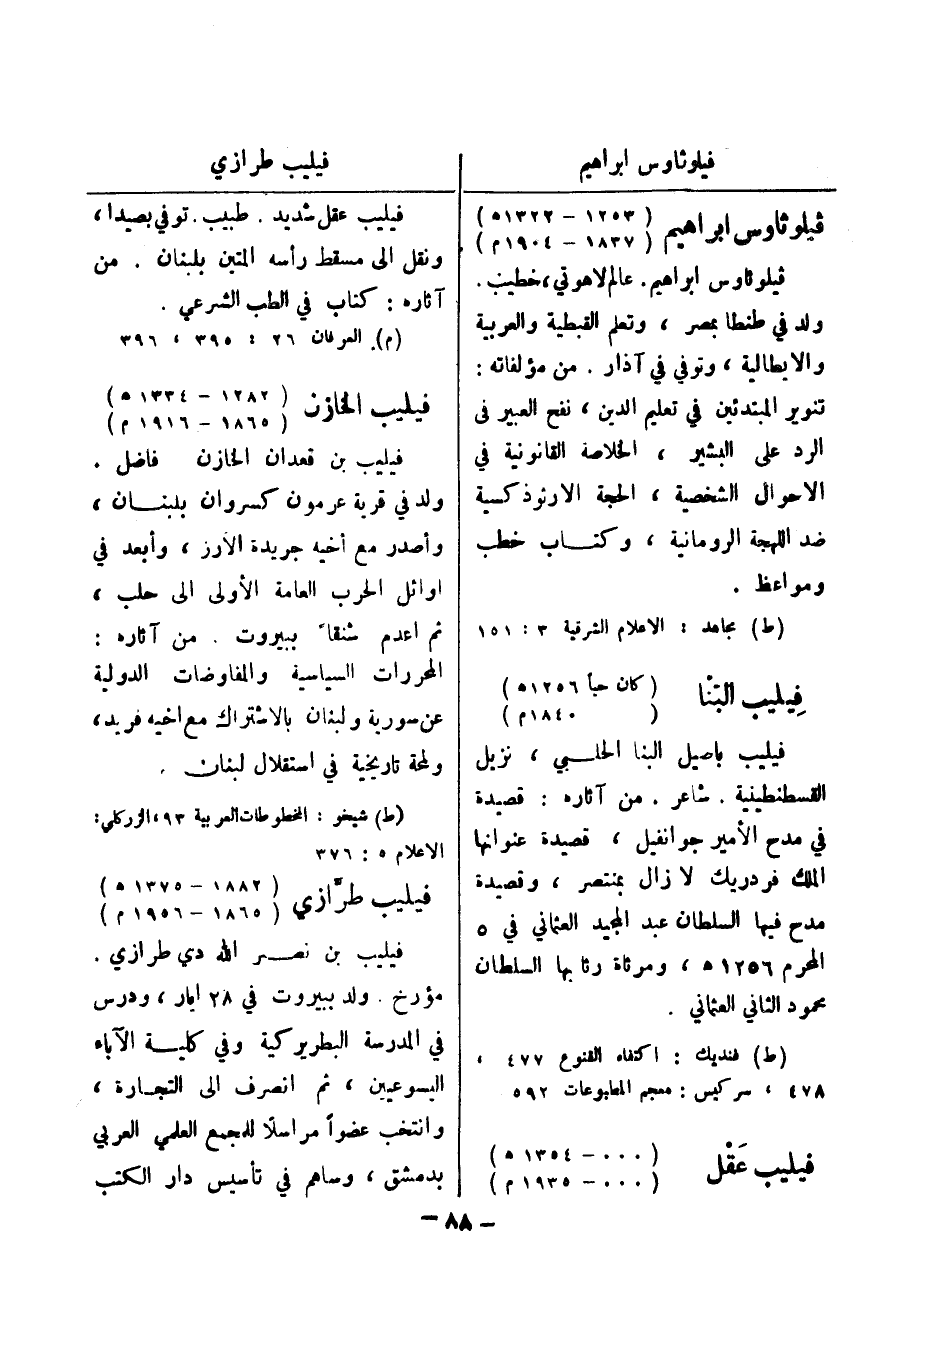 فيلوثاوس ابراهيم
فيلوثاوس ابراهيم ( ١٢٥٣ – ١٣٢٢ ه )
( ١٨٣٧ – ١٩٠٤ م )
فيلوثاوس ابراهيم. عالم لاهوتي، خطيب.
ولد في طنطا بمصر ، وتعلم القبطية والعربية
والايطالية ، وتوفي في آذار . من مؤلفاته :
تنوير المبتدئين في تعليم الدين ، نفح العبير في
الرد على البشير ، الخلاصة القانونية في
الاحوال الشخصية ، الحجة الارثوذكسية
ضد اللهجة الرومانية ، وكتاب خطب
ومواعظ .
(ط) مجاهد : الاعلام الشرقية ٣ : ١٥١
فِيليب البَنْا ( كان حياً ١٢٥٦ ه )
( ١٨٤٠ م )
فيليب باصيل البنا الحلبي ، نزيل
القسطنطينية . شاعر . من آثاره : قصيدة
في مدح الأمير جوانفيل ، قصيدة عنوانها
الملك فردريك لا زال بمنتصر ، وقصيدة
مدح فيها السلطان عبد المجيد العثماني في ٥
المحرم ١٢٥٦ ه ، ومرثاة رثا بها السلطان
محمود الثاني العثماني .
(ط) فنديك : اكتفاء القنوع ٤٧٧ ،
٤٧٨ ، سركيس : معجم المطبوعات ٥٩٢
فيليب عَقْل ( ٠٠٠ – ١٣٥٤ ه )
( ٠٠٠ – ١٩٣٥ م )
فيليب طرازي
فيليب عقل شديد . طبيب . توفي بصيدا ،
ونقل الى مسقط رأسه المتين بلبنان . من
آثاره : كتاب في الطب الشرعي .
(م). العرفان ٢٦ : ٣٩٥ ، ٣٩٦
فيليب الخازن ( ١٢٨٢ – ١٣٣٤ ه )
( ١٨٦٥ – ١٩١٦ م )
فيليب بن قعدان الخازن فاضل .
ولد في قرية عرمون كسروان بلبنان ،
وأصدر مع أخيه جريدة الأرز ، وأبعد في
اوائل الحرب العامة الأولى الى حلب ،
ثم اعدم شنقاً ببيروت . من آثاره :
المحررات السياسية والمفاوضات الدولية
عن سورية ولبنان بالاشتراك مع اخيه فريد،
ولمحة تاريخية في استقلال لبنان .
(ط) شيخو : المخطوطات العربية ٩٣، الزركلي:
الاعلام ٥ : ٣٧٦
فيليب طرَّازي ( ١٨٨٢ – ١٣٧٥ ه )
( ١٨٦٥ – ١٩٥٦ م )
فيليب بن نصر الله دي طرازي .
مؤرخ . ولد ببيروت في ٢٨ ايار ، ودرس
في المدرسة البطريركية وفي كلية الآباء
اليسوعيين ، ثم انصرف الى التجارة ،
وانتخب عضواً مراسلًا للمجمع العلمي العربي
بدمشق ، وساهم في تأسيس دار الكتب
– ٨٨ –